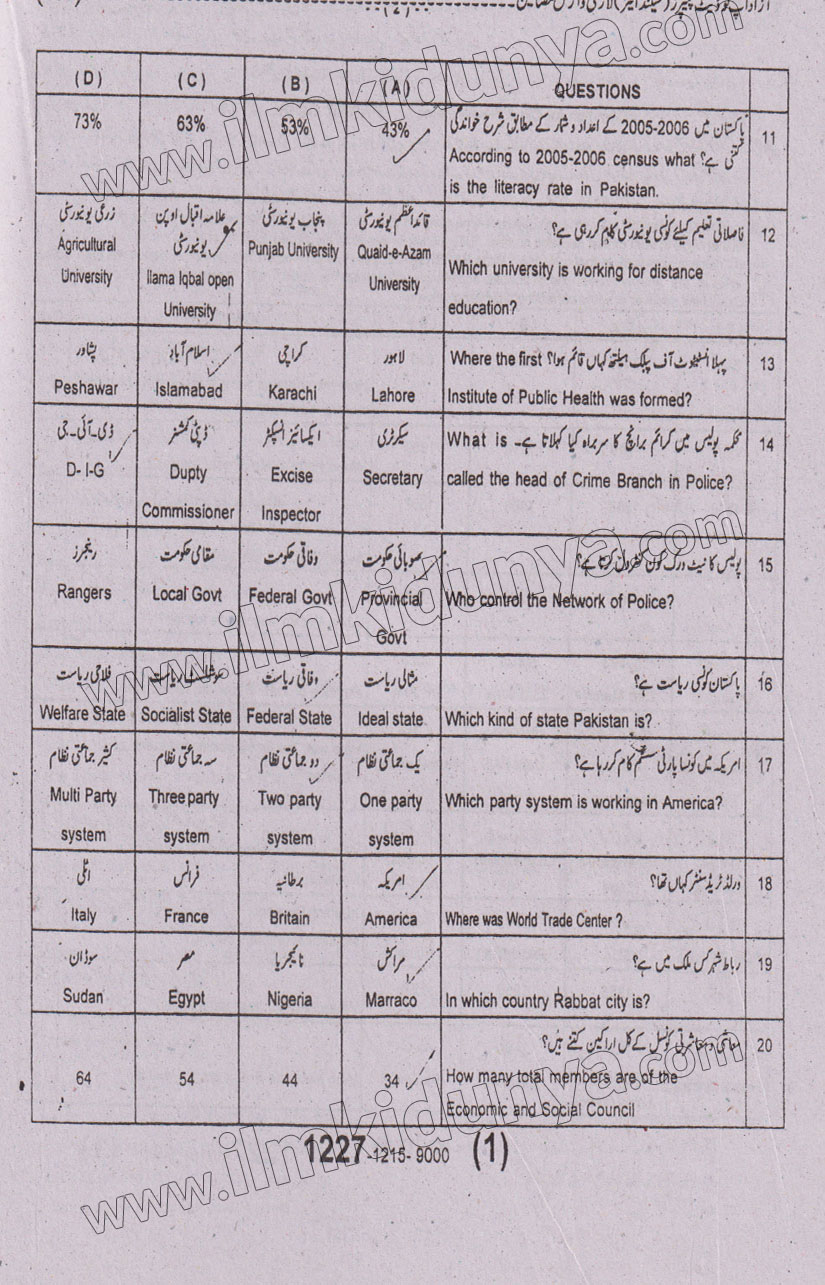 (2)
(D) (C) (B) (A) QUESTIONS
73% 63% 53% 43% پاکستان میں 2005-2006 کے اعداد و شمار کے مطابق شرح خواندگی 11
کتنی ہے؟ According to 2005-2006 census what
is the literacy rate in Pakistan.
زرعی یونیورسٹی علامہ اقبال اوپن پنجاب یونیورسٹی قائداعظم یونیورسٹی فاصلاتی تعلیم کیلئے کونسی یونیورسٹی کام کر رہی ہے؟ 12
Agricultural یونیورسٹی Punjab University Quaid-e-Azam Which university is working for distance
University llama Iqbal open University education?
University
پشاور اسلام آباد کراچی لاہور پہلا انسٹیٹیوٹ آف پبلک ہیلتھ کہاں قائم ہوا؟ Where the first 13
Peshawar Islamabad Karachi Lahore Institute of Public Health was formed?
ڈی۔آئی۔جی ڈپٹی کمشنر ایکسائیز انسپکٹر سیکرٹری محکمہ پولیس میں کرائم برانچ کا سربراہ کیا کہلاتا ہے۔ What is 14
D- I-G Dupty Excise Secretary called the head of Crime Branch in Police?
Commissioner Inspector
رینجرز مقامی حکومت وفاقی حکومت صوبائی حکومت پولیس کا نیٹ ورک کون کنٹرول کرتا ہے؟ 15
Rangers Local Govt Federal Govt Provincial Who control the Network of Police?
Govt
فلاحی ریاست سوشلسٹ ریاست وفاقی ریاست مثالی ریاست پاکستان کونسی ریاست ہے؟ 16
Welfare State Socialist State Federal State Ideal state Which kind of state Pakistan is?
کثیر جماعتی نظام سہ جماعتی نظام دو جماعتی نظام یک جماعتی نظام امریکہ میں کونسا پارٹی سسٹم کام کر رہا ہے؟ 17
Multi Party Three party Two party One party Which party system is working in America?
system system system system
اٹلی فرانس برطانیہ امریکہ ورلڈ ٹریڈ سنٹر کہاں تھا؟ 18
Italy France Britain America Where was World Trade Center ?
سوڈان مصر نائیجریا مراکش رباط شہر کس ملک میں ہے؟ 19
Sudan Egypt Nigeria Marraco In which country Rabbat city is?
معاشی و معاشرتی کونسل کے کل اراکین کتنے ہیں؟ 20
64 54 44 34 How many total members are of the
Economic and Social Council
1227-1215-9000 (1)
www.ilmkidunya.com
www.ilmkidunya.com
www.ilmkidunya.com